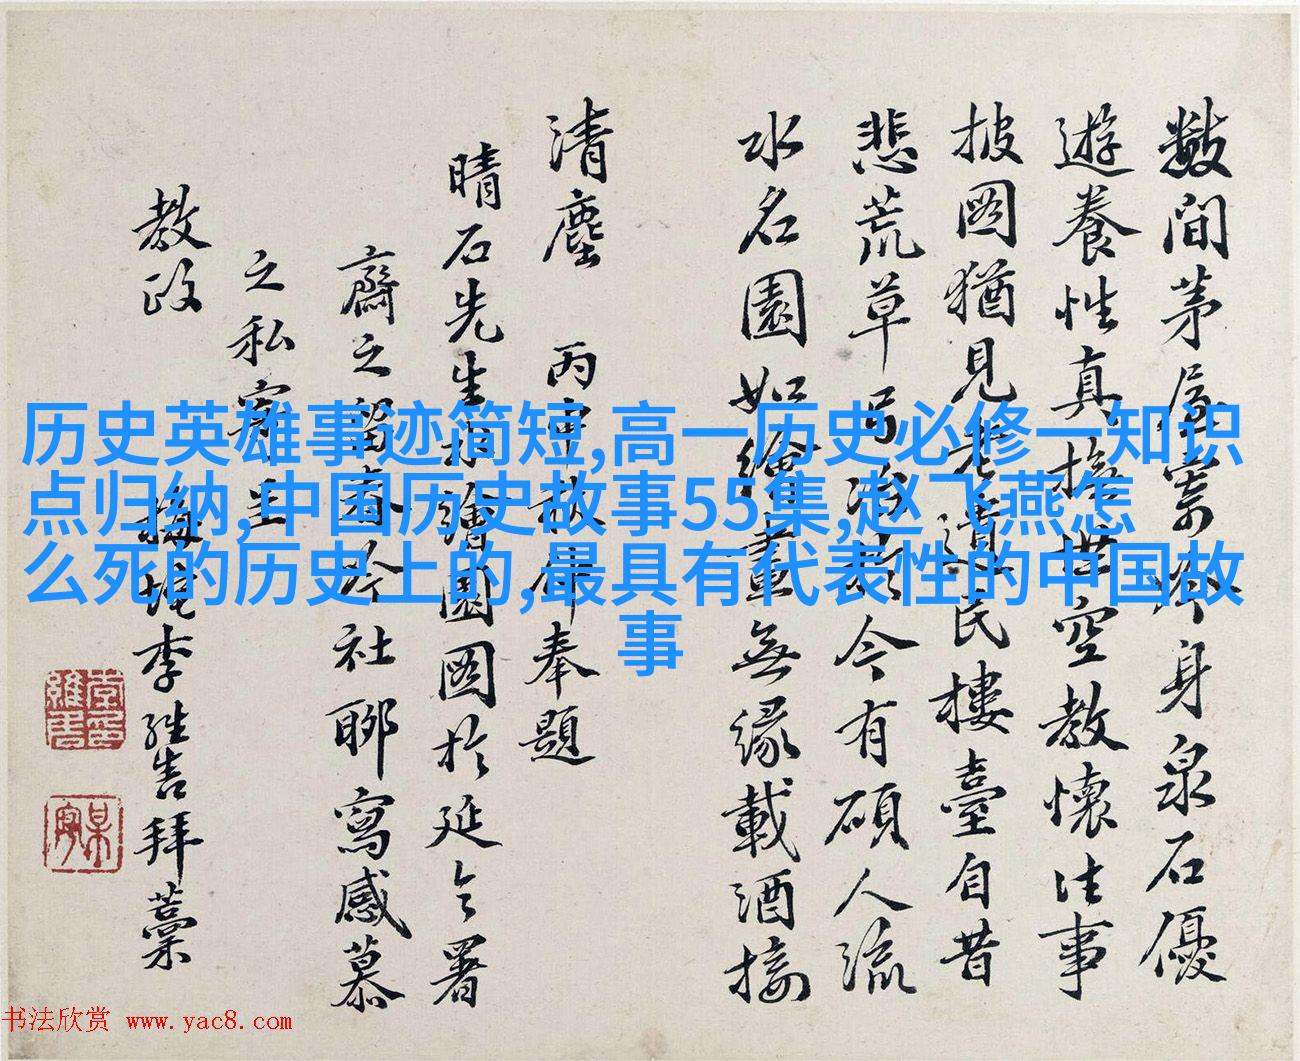 数间茅屋寄吟身泉石優
遊養性真撫世空教懷往事
披图猶見老遺民樓臺自昔
悲荒草 今有碩人流
水名園如繪畫無緣載酒接
清塵 丙申 奉題
晴石先生 繪園図於延令署
齋之留春吟社聊寫感慕
之私 
教政 李 拜藁
历史英雄事迹简短,高一历史必修一知识
点归纳,中国历史故事55集,赵飞燕怎
么死的历史上的,最具有代表性的中国故
事
书法欣赏 www.yac8.com